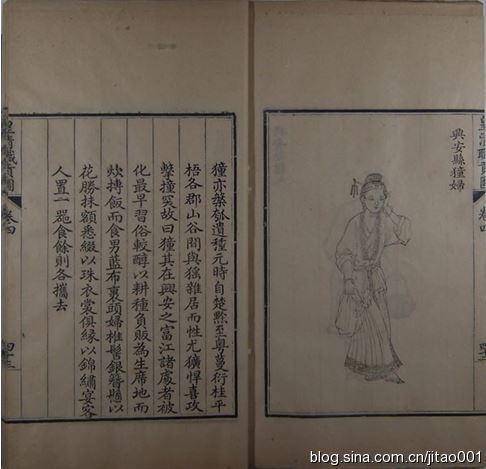 皇清職貢圖
卷四
興安縣獞婦
獞亦槃瓠遺種元時自楚黔至粵蔓衍桂平
梧各郡山谷間與猺雜居而性尤獷悍喜攻
擊撞突故曰獞其在興安之富江諸處者被
化最早習俗較醇以耕種負販為生席地而
炊摶飯而食男藍布裹頭婦椎髻銀簪懸以
花勝抹額悉綴以珠衣裳俱緣以錦繡宴客
人置一器食餘則各攜去
皇清職貢圖
卷四
blog.sina.com.cn/jitao001